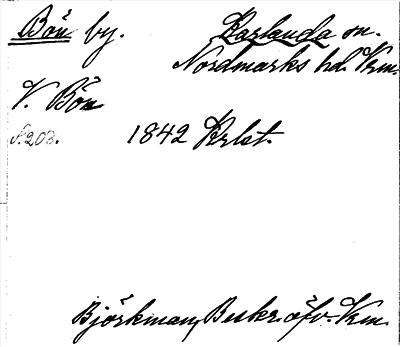 Bön by. Karlanda sn.
Nordmarks hd. Vrm.
V. Bön
S. 208. 1842 Krlst.
Björkman, Beskr. öfv. Vrm.